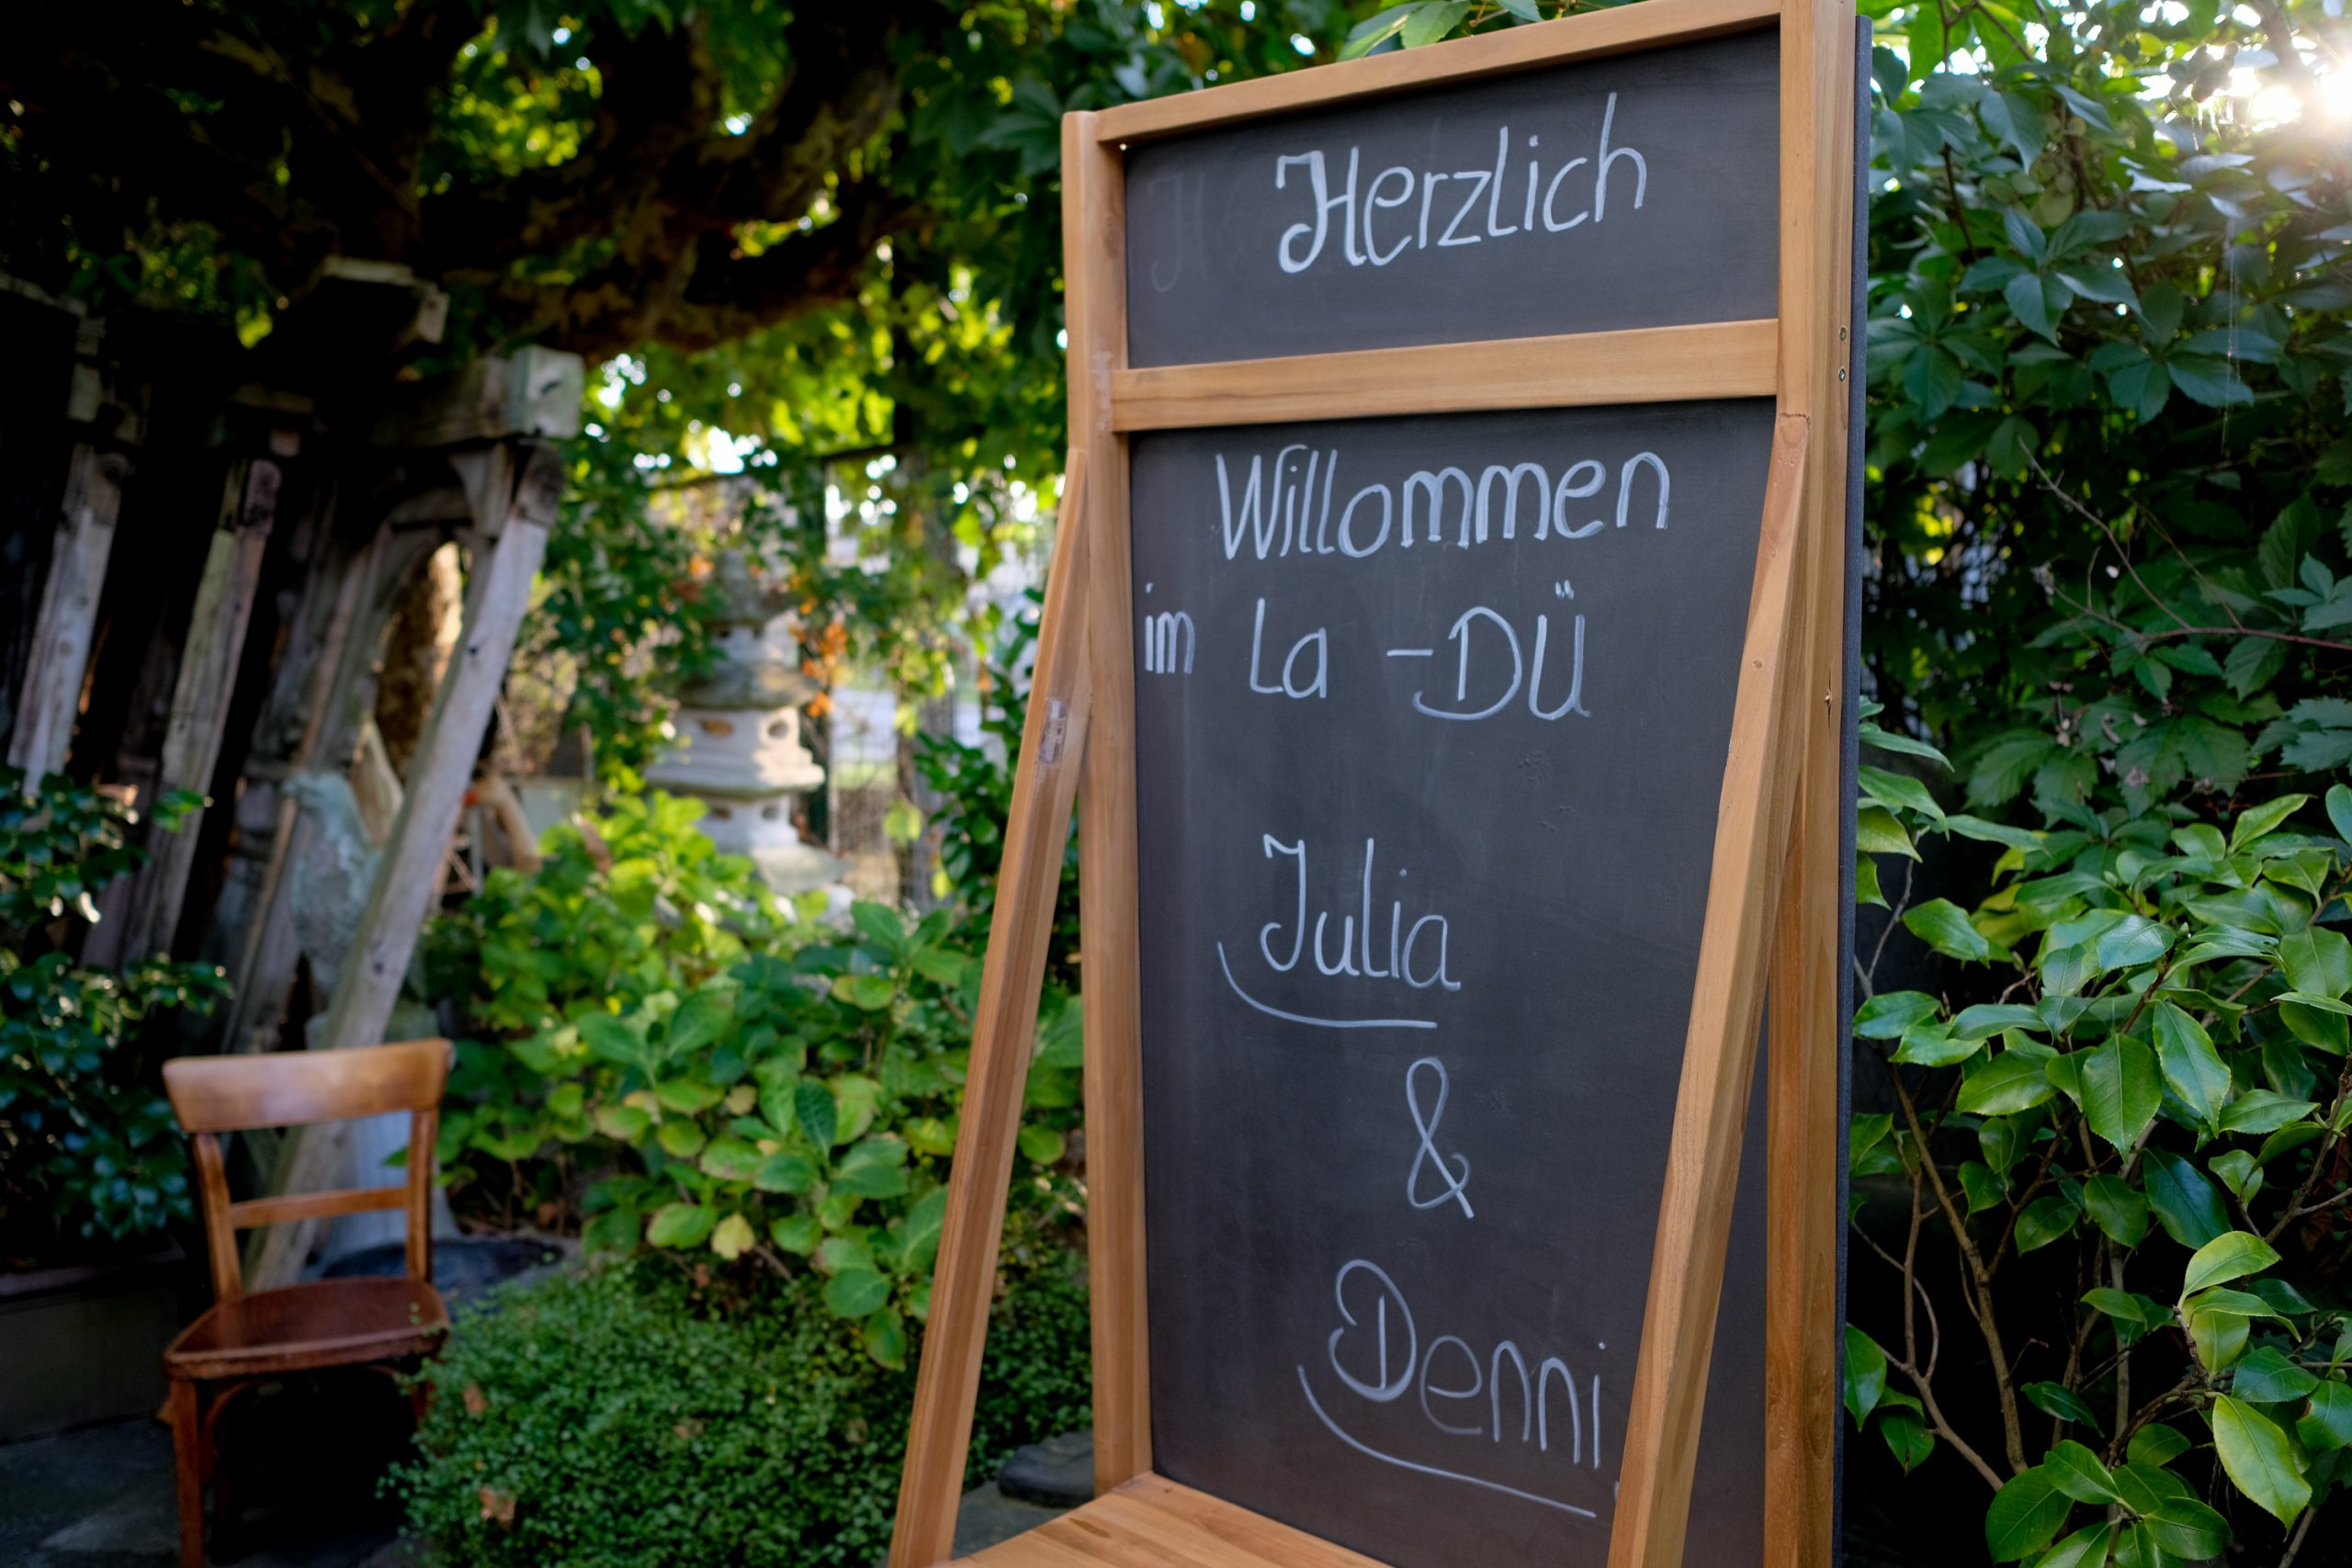 Herzlich
Willommen
im La -DÜ
Julia
&
Denni